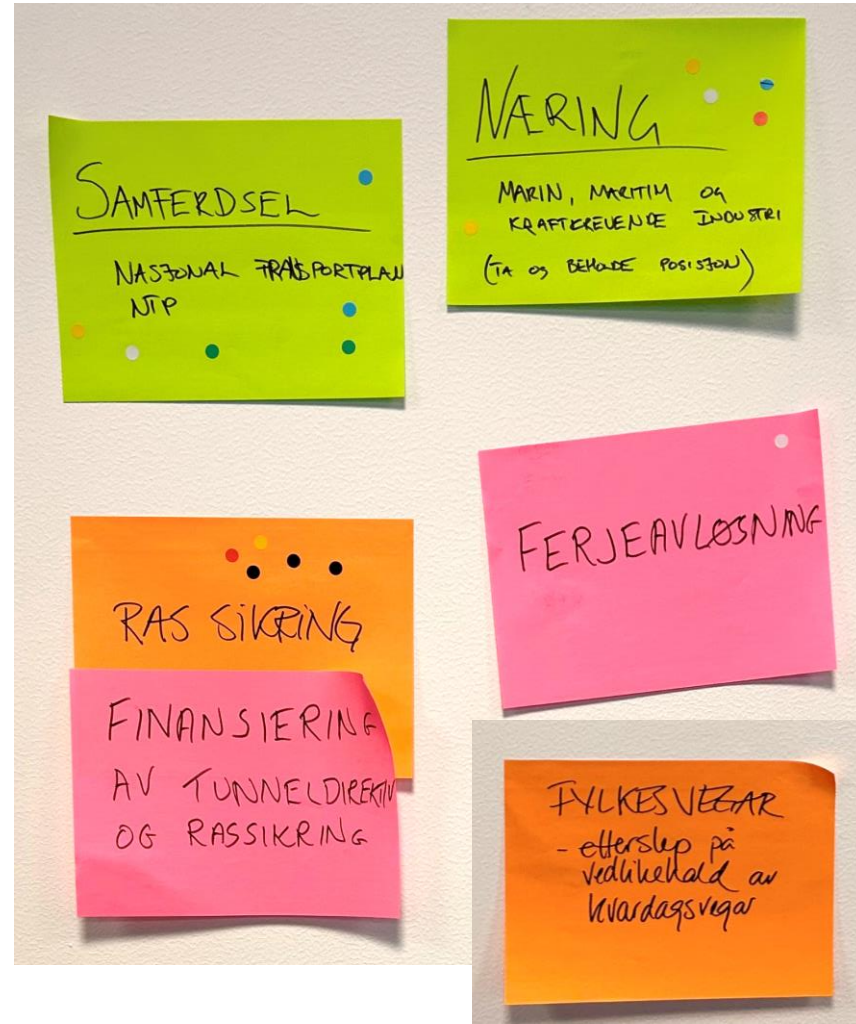 SAMFERDSEL
NASJONAL TRANSPORTPLAN
NTP
NÆRING
MARIN, MARITIM OG
KRAFTKREVENDE INDUSTRI
(TA OG BEHOLDE POSISJON)
RAS SIKRING
FINANSIERING
AV TUNNELDIREKTIV
OG RASSIKRING
FERJEAVLØSNING
FYLKESVEGAR
- etterslep på
vedlikehald av
kvardagsvegar